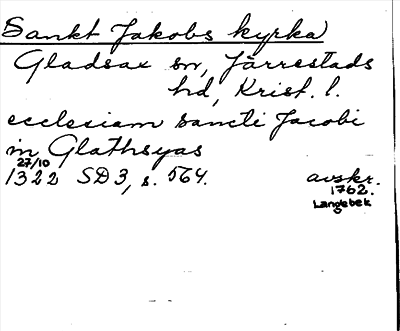 Sankt Jakobs kyrka
Gladsax sn, Järrestads
hd, Krist. l.
ecclesiam sancti Jacobi
in Glathsyas
27/10
1322 SD3, s. 564. avskr.
1762.
Langebek